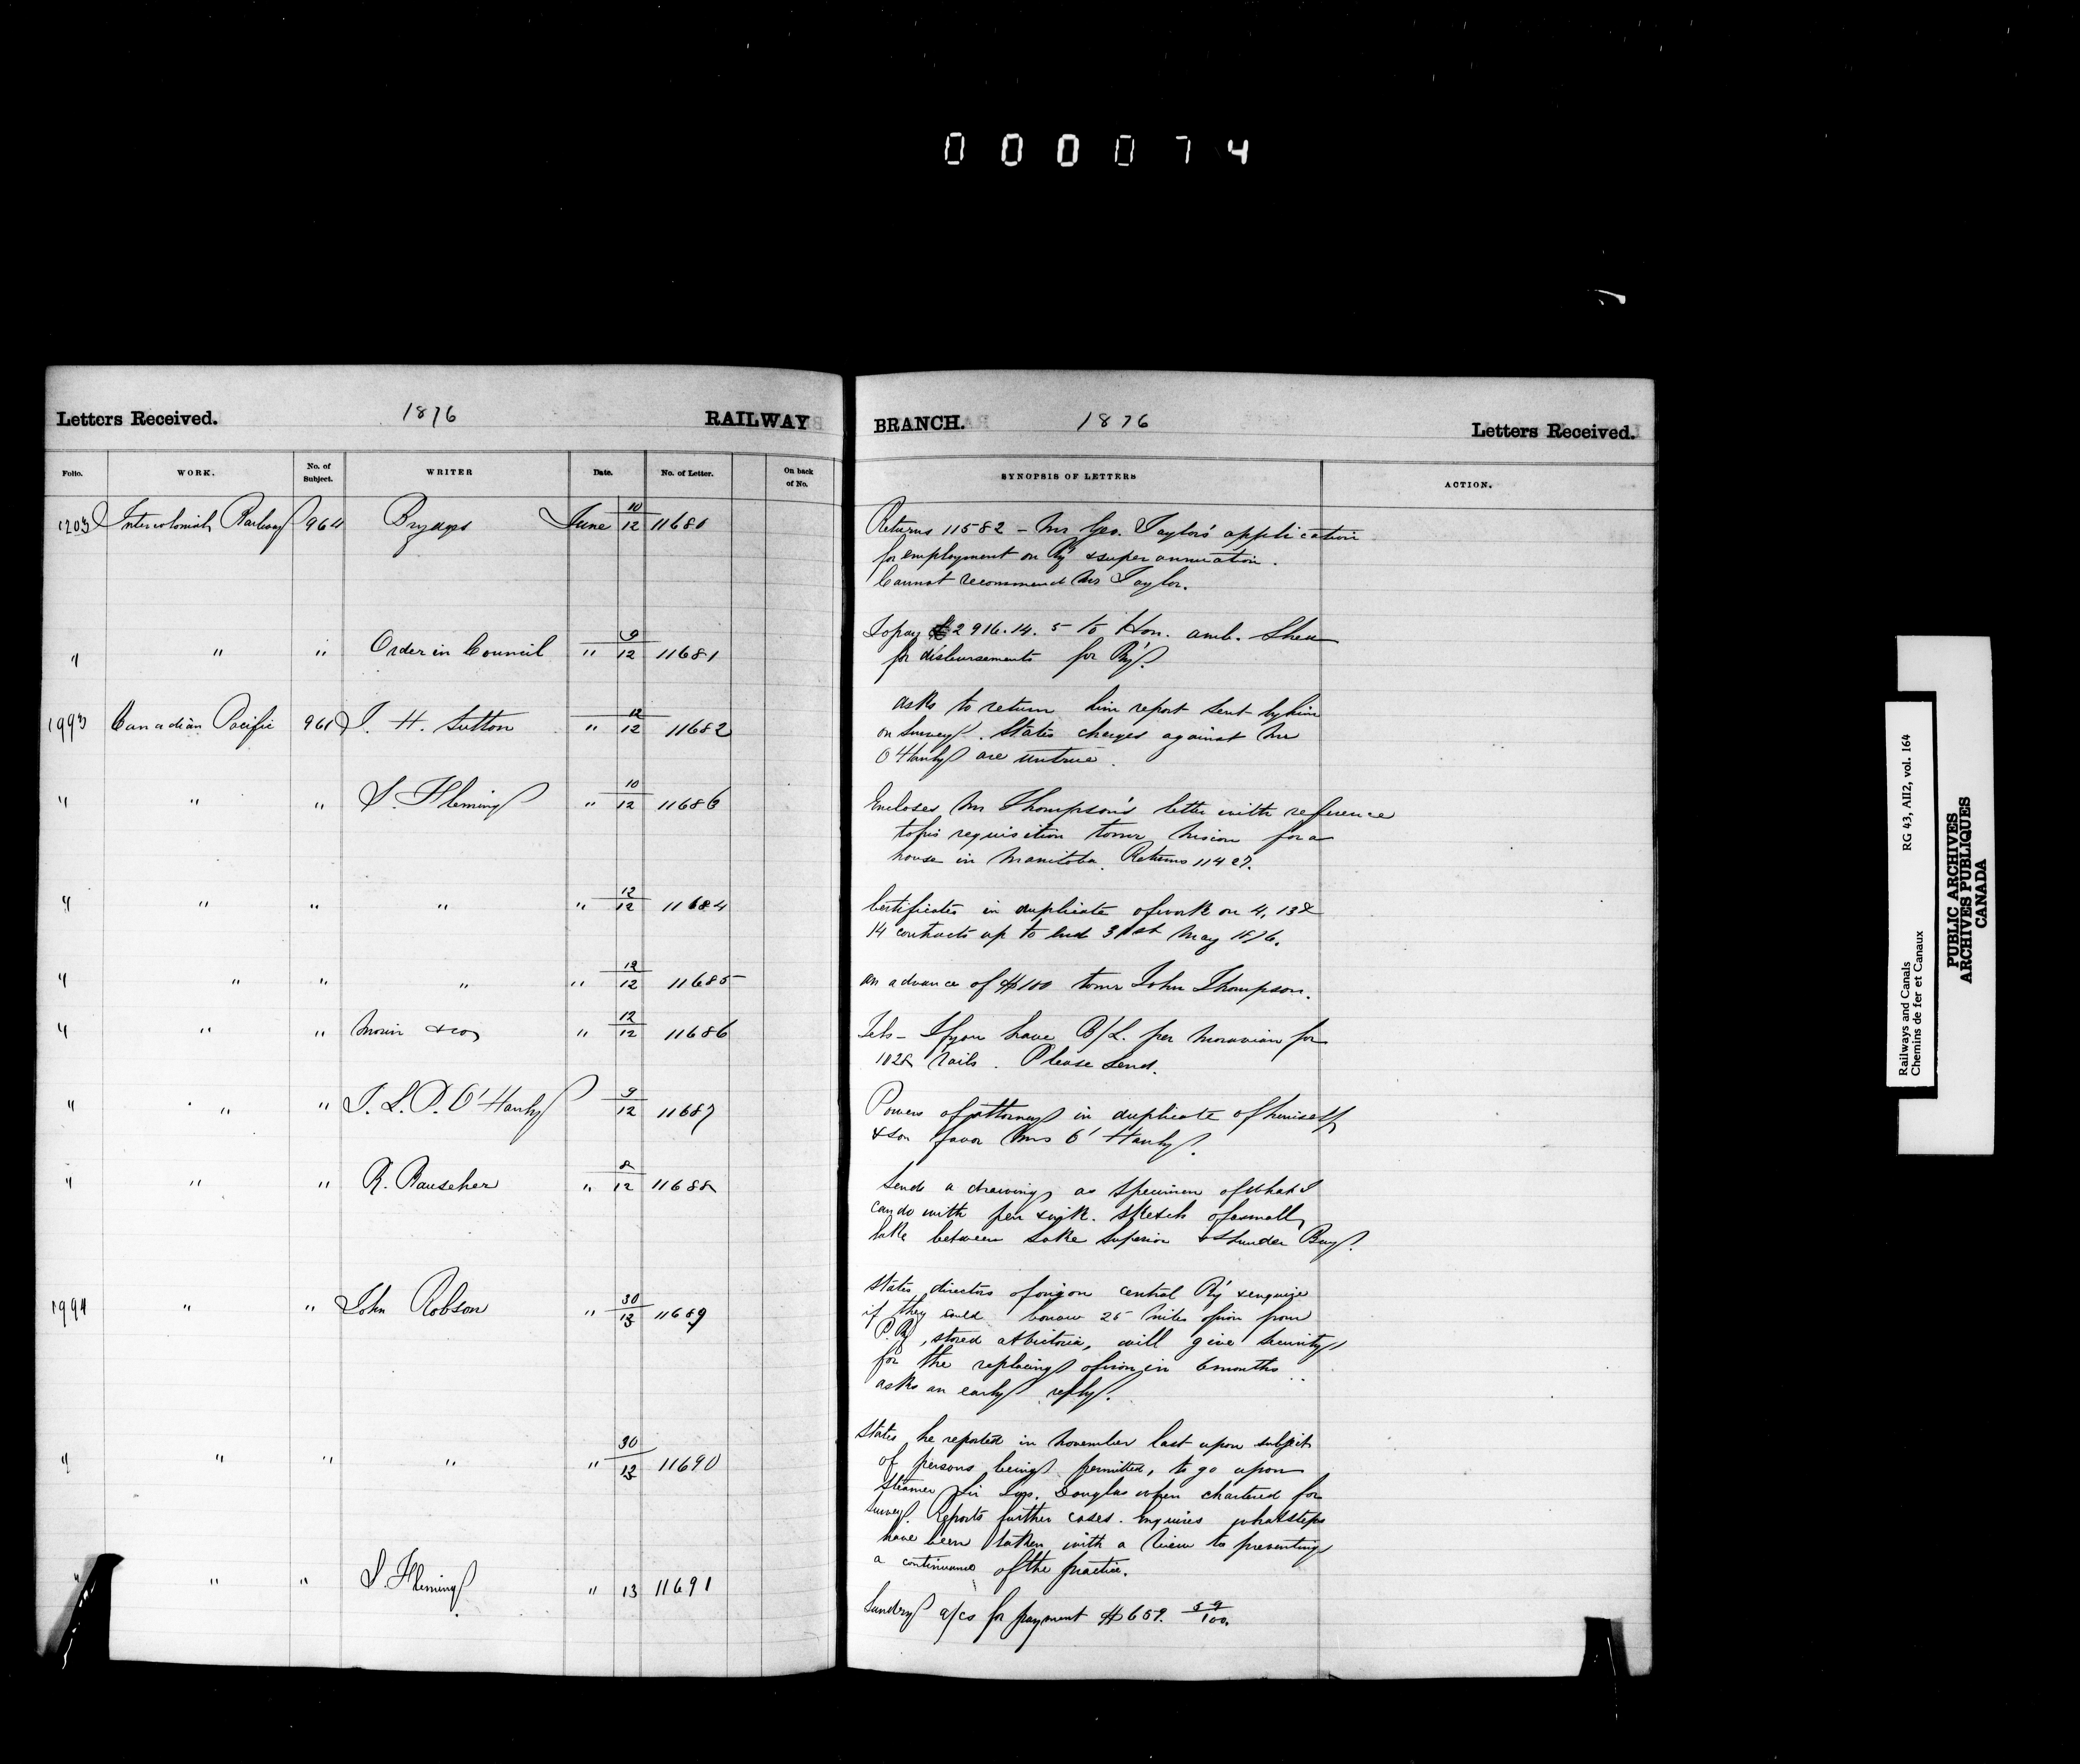 000074
Letters Received. 1876 RAILWAY
Folio. WORK. No. of Subject. WRITER Date. No. of Letter. On back of No.
1203 Intercolonial Railway 964 Brydges June 10/12 11680
" " " Order in Council " 9/12 11681
1993 Canadian Pacific 961 J. H. Sutton " 12/12 11682
" " " S. Fleming " 10/12 11683
" " " " " 12/12 11684
" " " " " 12/12 11685
" " " Morin & Co " 12/12 11686
" " " J. L. P. O'Hanly " 9/12 11687
" " " R. Rauscher " 8/12 11688
1994 " " John Robson " 30/13 11689
" " " " " 30/13 11690
" " " S. Fleming " 13 11691
BRANCH. 1876 Letters Received.
SYNOPSIS OF LETTERS ACTION.
Returns 11582 - Mr Geo. Taylor's application
for employment on Ry & superannuation.
Cannot recommend Mr Taylor.
To pay £2916.14.5 to Hon. Amb. Shea
for disbursements for Ry.
asks to return him report sent by him
on survey. States charges against Mr
O'Hanly are untrue.
Encloses Mr Thompson's letter with reference
to his requisition to Mr Nixon for a
house in Manitoba. Returns 11427.
Certificates in duplicate of work on 4, 13 &
14 contracts up to end 31st May 1876.
an advance of $100 to Mr John Thompson.
Tels - If you have B/L. per Moravian for
1028 rails. Please send.
Powers of attorney in duplicate of himself
& son favor Mrs O'Hanly.
Sends a drawing as specimen of what I
can do with pen & ink. Sketch of a small
lake between Lake Superior & Thunder Bay.
States directors of Origon Central Ry & enquire
if they could borrow 25 miles of iron from
P. Ry, stored at Victoria, will give security
for the replacing of iron in 6 months
asks an early reply.
States he reported in November last upon subject
of persons being permitted, to go upon
Steamer Sir Jas. Douglas when chartered for
survey. Reports further cases. Enquires what steps
have been taken with a view to preventing
a continuance of the practice.
Sundry a/cs for payment $659. 59/100
Railways and Canals RG 43, AII2, vol. 164
Chemins de fer et Canaux
PUBLIC ARCHIVES
ARCHIVES PUBLIQUES
CANADA